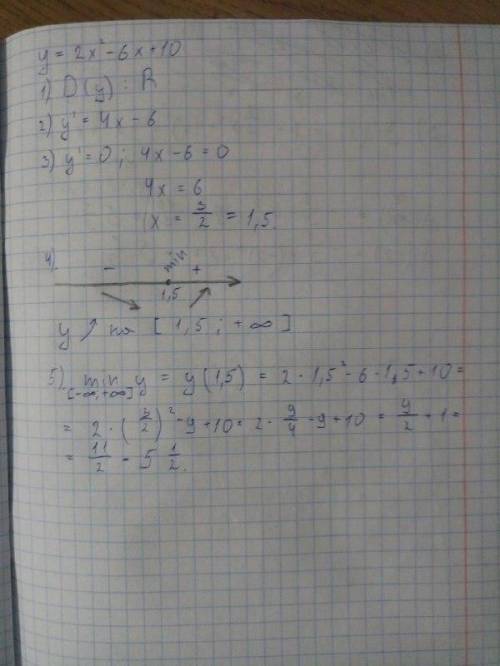 y = 2x² - 6x + 10
1) D(y) : R
2) y' = 4x - 6
3) y' = 0 ; 4x - 6 = 0
4x = 6
x = 3/2 = 1,5
4)
- min +
1,5
y ↗ на [1,5 ; +∞]
5) min y = y(1,5) = 2 · 1,5² - 6 · 1,5 + 10 =
[-∞,+∞]
= 2 · (3/2)² - 9 + 10 = 2 · 9/4 - 9 + 10 = 9/2 + 1 =
= 11/2 = 5 1/2.